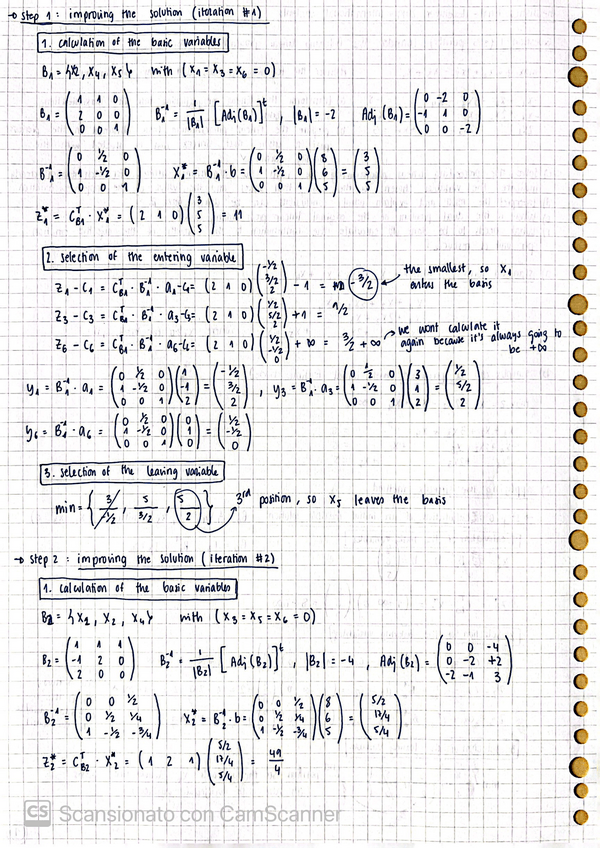 → Step 1 : improving the solution (iteration #1)
1. calculation of the basic variables
B₁ = {x₂, x₄, x₅} with (x₁ = x₃ = x₆ = 0)
B₁ = (1 1 0 / 2 0 0 / 0 0 1) B₁⁻¹ = 1/|B₁| [Adj(B₁)]ᵗ , |B₁| = -2 Adj(B₁) = (0 -2 0 / -1 1 0 / 0 0 -2)
B₁⁻¹ = (0 1/2 0 / 1 -1/2 0 / 0 0 1) X₁* = B₁⁻¹ · b = (0 1/2 0 / 1 -1/2 0 / 0 0 1) (8 / 6 / 5) = (3 / 5 / 5)
Z₁* = Cᵀ_B₁ · X₁* = (2 1 0) (3 / 5 / 5) = 11
2. selection of the entering variable
Z₁ - C₁ = Cᵀ_B₁ · B₁⁻¹ · a₁ - C₁ = (2 1 0) (-1/2 / 3/2 / 2) - 1 = -3/2 the smallest, so x₁ enters the basis
Z₃ - C₃ = Cᵀ_B₁ · B₁⁻¹ · a₃ - C₃ = (2 1 0) (1/2 / 5/2 / 2) + 1 = 1/2
Z₆ - C₆ = Cᵀ_B₁ · B₁⁻¹ · a₆ - C₆ = (2 1 0) (1/2 / -1/2 / 0) + ∞ = 3/2 + ∞ → we wont calculate it again because it's always going to be +∞
y₁ = B₁⁻¹ · a₁ = (0 1/2 0 / 1 -1/2 0 / 0 0 1) (1 / -1 / 2) = (-1/2 / 3/2 / 2) , y₃ = B₁⁻¹ · a₃ = (0 1/2 0 / 1 -1/2 0 / 0 0 1) (3 / 1 / 2) = (1/2 / 5/2 / 2)
y₆ = B₁⁻¹ · a₆ = (0 1/2 0 / 1 -1/2 0 / 0 0 1) (0 / 1 / 0) = (1/2 / -1/2 / 0)
3. selection of the leaving variable
min = {3/-1/2 , 5/3/2 , 5/2} 3rd position, so x₅ leaves the basis
→ Step 2 : improving the solution (iteration #2)
1. calculation of the basic variables
B₂ = {x₁, x₂, x₄} with (x₃ = x₅ = x₆ = 0)
B₂ = (1 1 1 / -1 2 0 / 2 0 0) B₂⁻¹ = 1/|B₂| [Adj(B₂)]ᵗ , |B₂| = -4 , Adj(B₂) = (0 0 -4 / 0 -2 +2 / -2 -1 3)
B₂⁻¹ = (0 0 1/2 / 0 1/2 1/4 / 1 -1/2 -3/4) X₂* = B₂⁻¹ · b = (0 0 1/2 / 0 1/2 1/4 / 1 -1/2 -3/4) (8 / 6 / 5) = (5/2 / 17/4 / 5/4)
Z₂* = Cᵀ_B₂ · X₂* = (1 2 1) (5/2 / 17/4 / 5/4) = 49/4
CS Scansionato con CamScanner